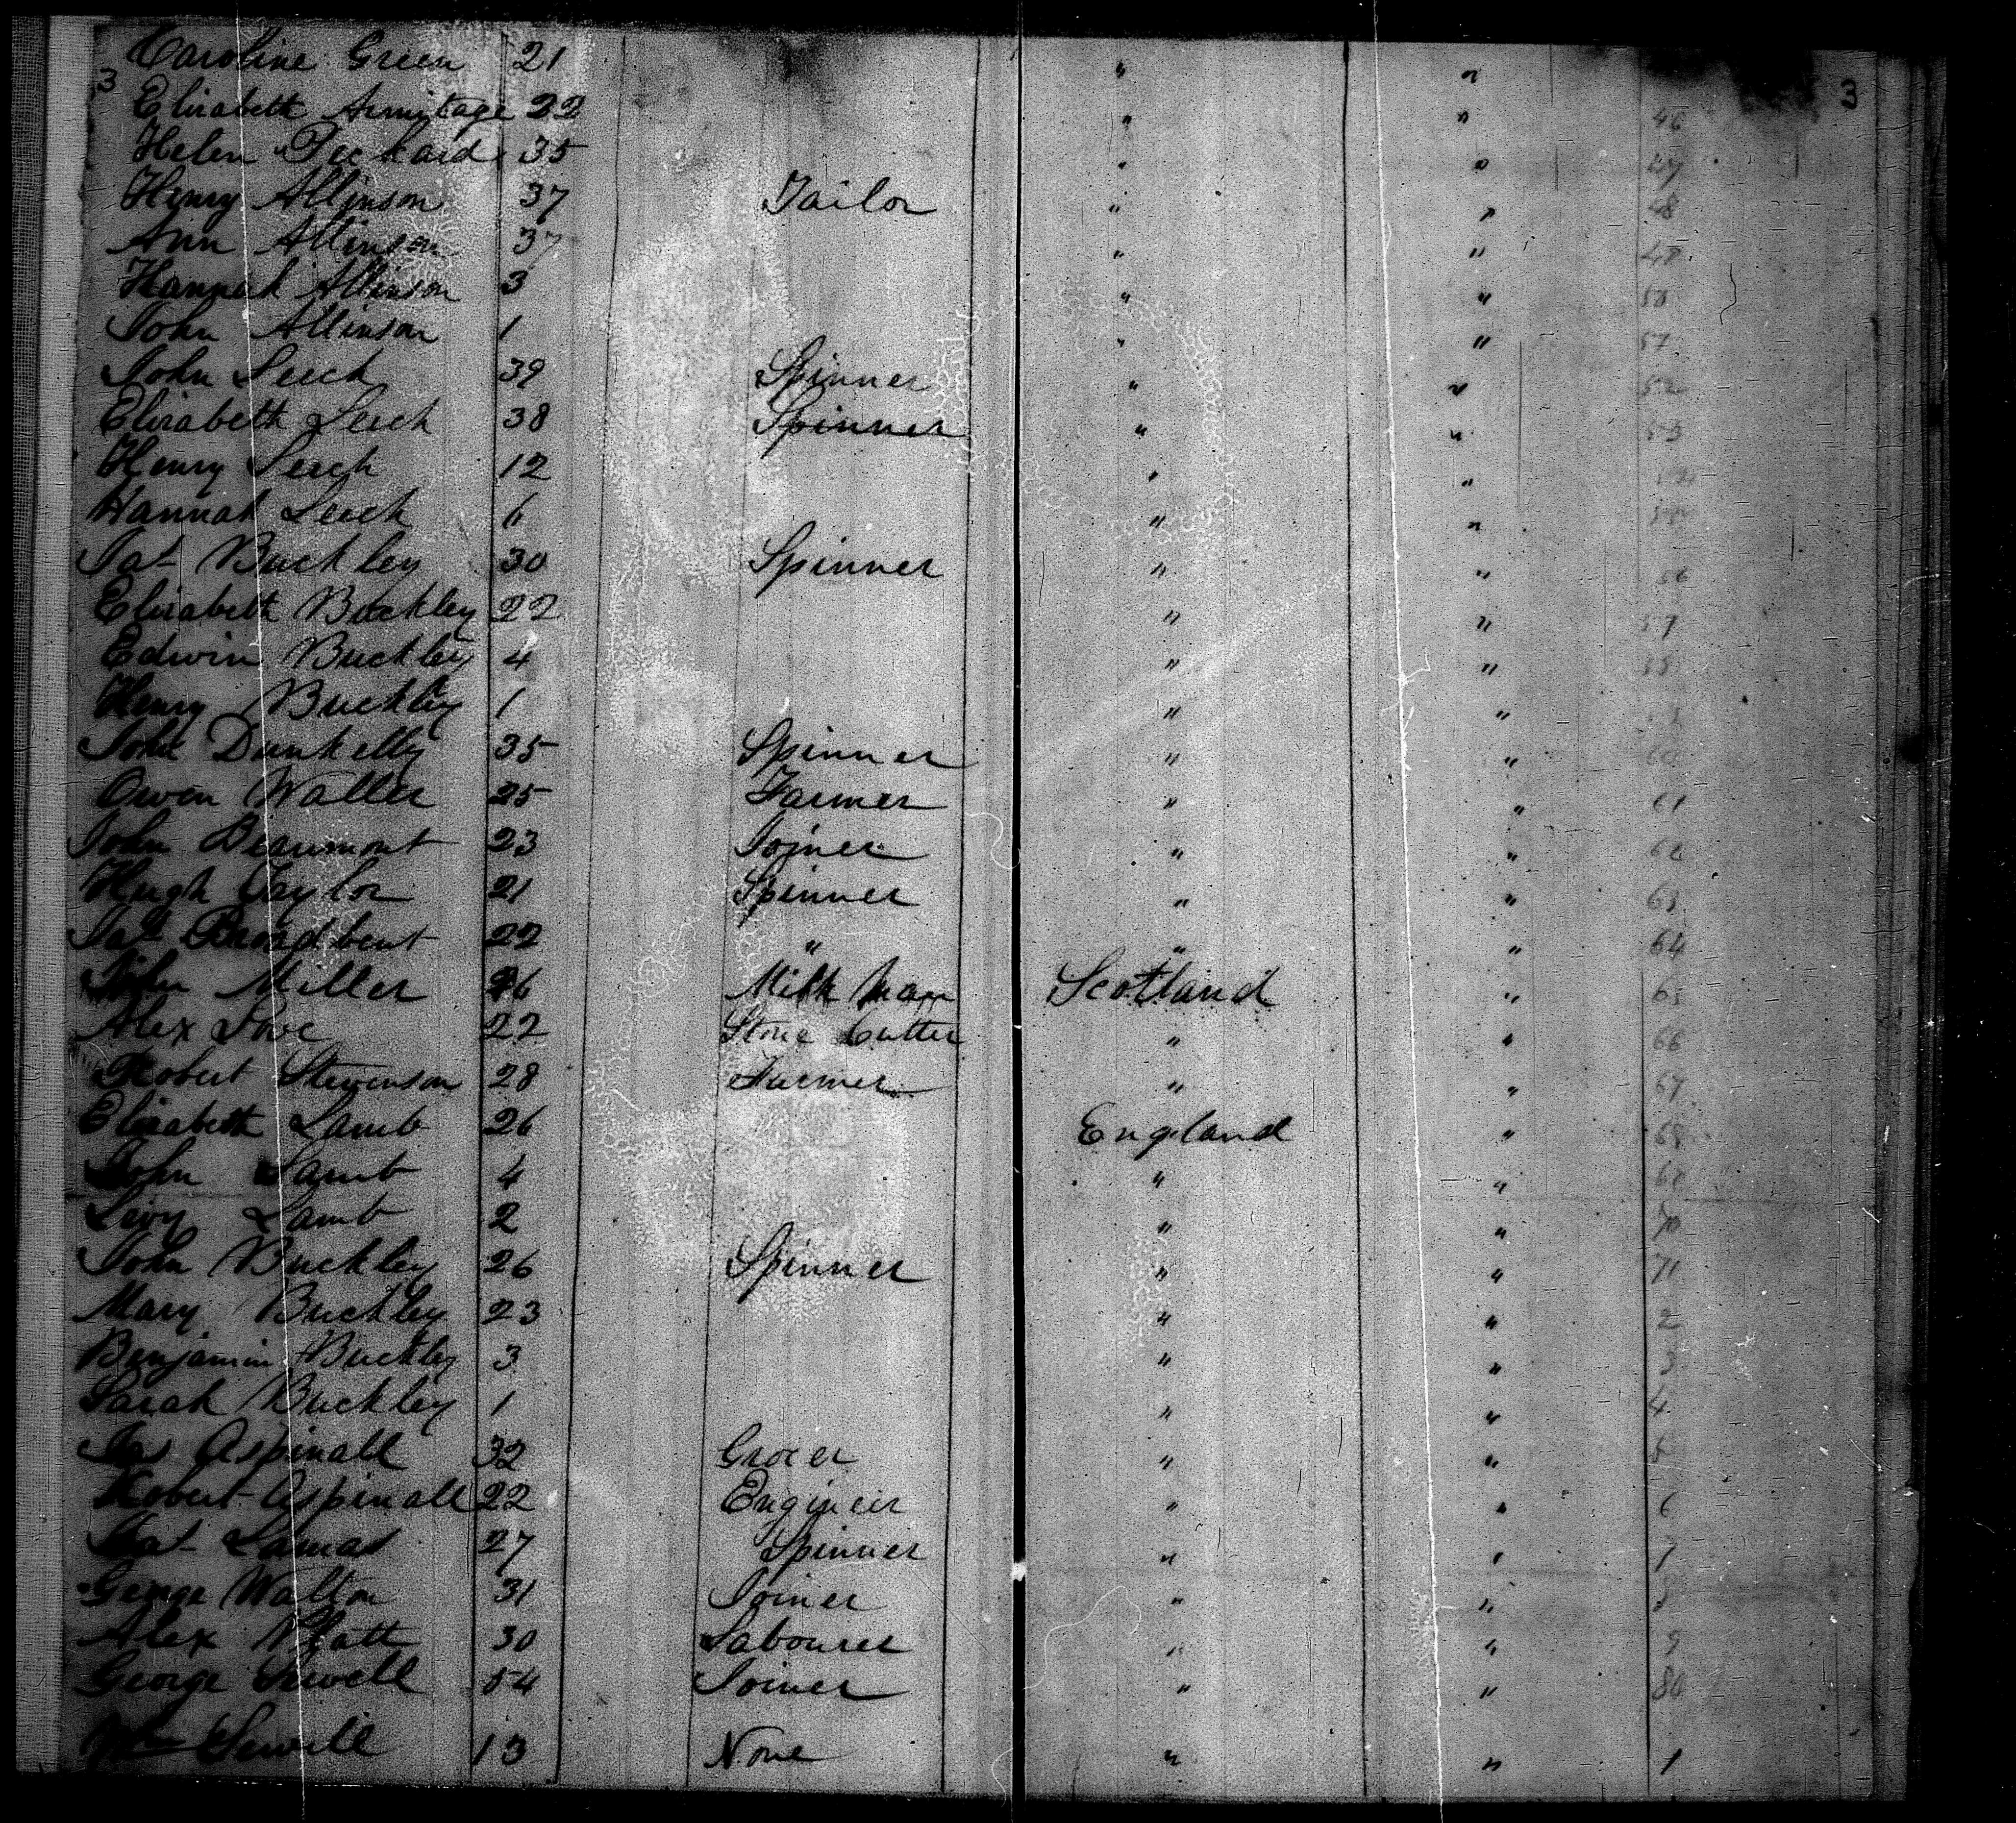 Caroline Green 21 " "
3 3
Elizabeth Armitage 22 " " 46
Helen 35 " " 47
Henry Allinson 37 Tailor " " 48
Ann Allinson 37 " " 49
Hannah Allinson 3 " " 50
John Allinson 1 " " 51
John Leech 39 Spinner " " 52
Elizabeth Leech 38 Spinner " " 53
Henry Leech 12 " " 54
Hannah Leech 6 " " 55
Buckley 30 Spinner " " 56
Elizabeth Buckley 22 " " 57
Edwin Buckley 4 " " 58
Henry Buckley 1 " " 59
John Dunkelly 35 Spinner " " 60
Owen Waller 25 Farmer " " 61
John Beaumont 23 Joiner " " 62
Hugh Taylor 21 Spinner " " 63
Broadbent 22 " " " 64
John Miller 26 Milk Man Scotland " 65
Alex 22 Stone Cutter " " 66
Robert Stevenson 28 Farmer " " 67
Elizabeth Lamb 26 England " 68
John Lamb 4 " " 69
Levy Lamb 2 " " 70
John Buckley 26 Spinner " " 71
Mary Buckley 23 " " 2
Benjamin Buckley 3 " " 3
Sarah Buckley 1 " " 4
Jas Aspinall 32 Grocer " " 5
Robert Aspinall 22 Engineer " " 6
Lamas 27 Spinner " " 7
George Walton 31 Joiner " " 8
Alex Platt 30 Labourer " " 9
George Sewell 54 Joiner " " 80
Wm Sewell 13 None " " 1